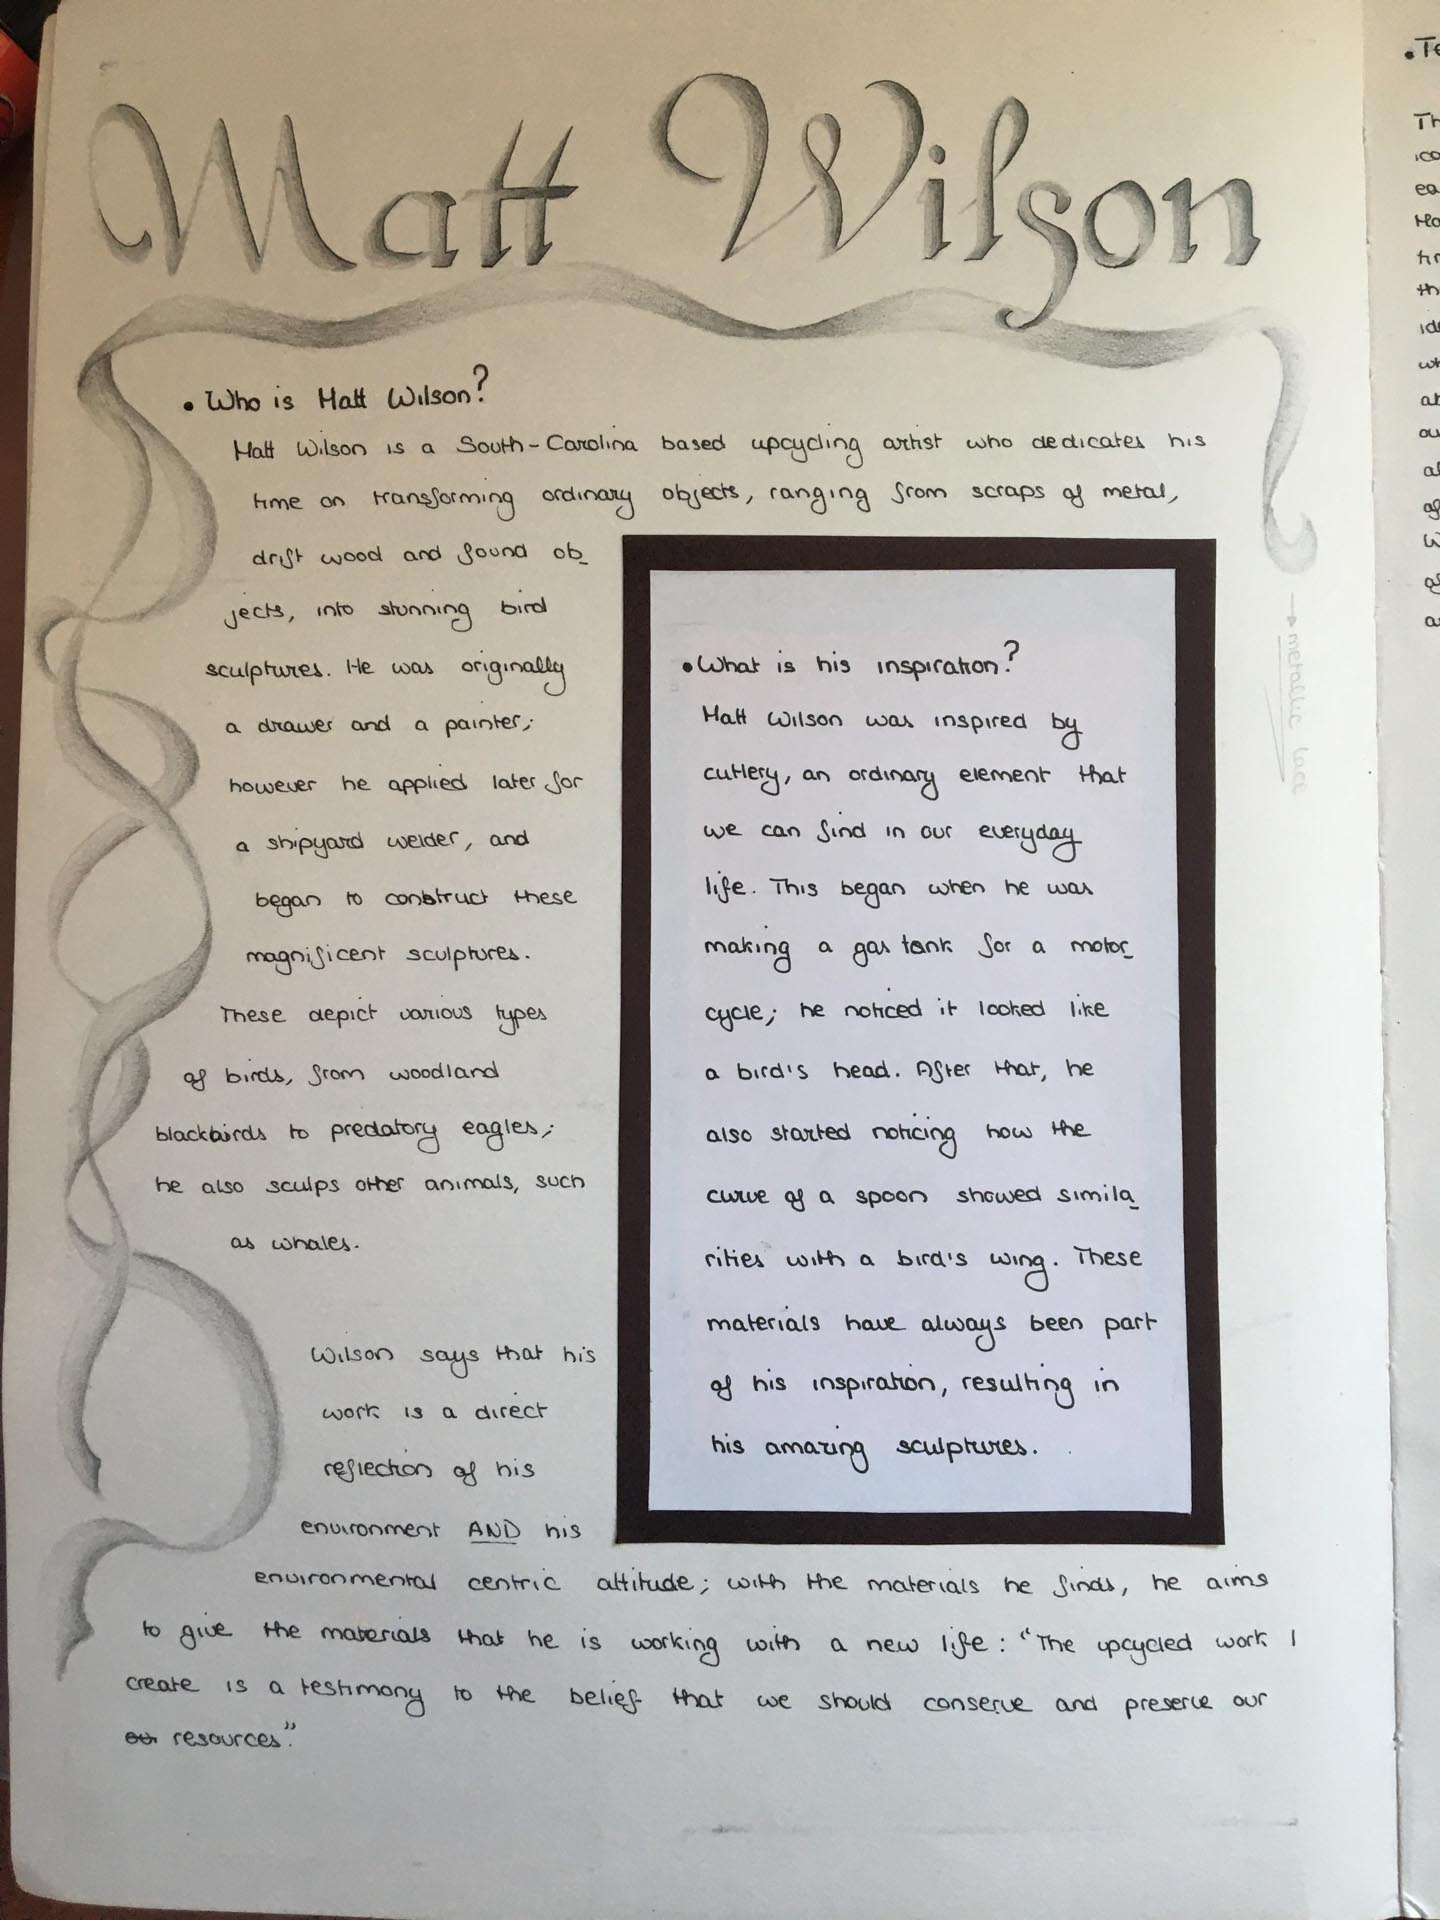 Matt Wilson
• Who is Matt Wilson?
Matt Wilson is a South-Carolina based upcycling artist who dedicates his
time on transforming ordinary objects, ranging from scraps of metal,
drift wood and found ob
jects, into stunning bird
sculptures. He was originally
a drawer and a painter;
however he applied later for
a shipyard welder, and
began to construct these
magnificent sculptures.
These depict various types
of birds, from woodland
blackbirds to predatory eagles;
he also sculps other animals, such
as whales.
Wilson says that his
work is a direct
reflection of his
environment AND his
environmental centric attitude; with the materials he finds, he aims
to give the materials that he is working with a new life: "The upcycled work I
create is a testimony to the belief that we should conserve and preserve our
our resources".
• What is his inspiration?
Matt Wilson was inspired by
cutlery, an ordinary element that
we can find in our everyday
life. This began when he was
making a gas tank for a motor
cycle; he noticed it looked like
a bird's head. After that, he
also started noticing how the
curve of a spoon showed simila
rities with a bird's wing. These
materials have always been part
of his inspiration, resulting in
his amazing sculptures.
→ metallic lace
• Te
Th
ico
ea
Ma
fir
th
ide
wh
ab
ou
al
of
W
of
an